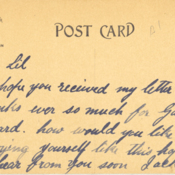 POST CARD
Lil
hope you recieved my letter
ever so much for
ard. how would you like
yourself like this
hear from you soon Jack